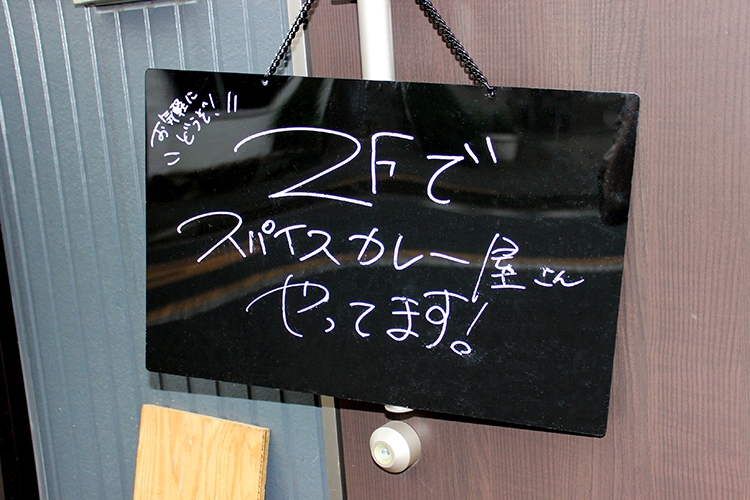 お気軽に
どうぞ!!
2Fで
スパイスカレー屋さん
やってます!